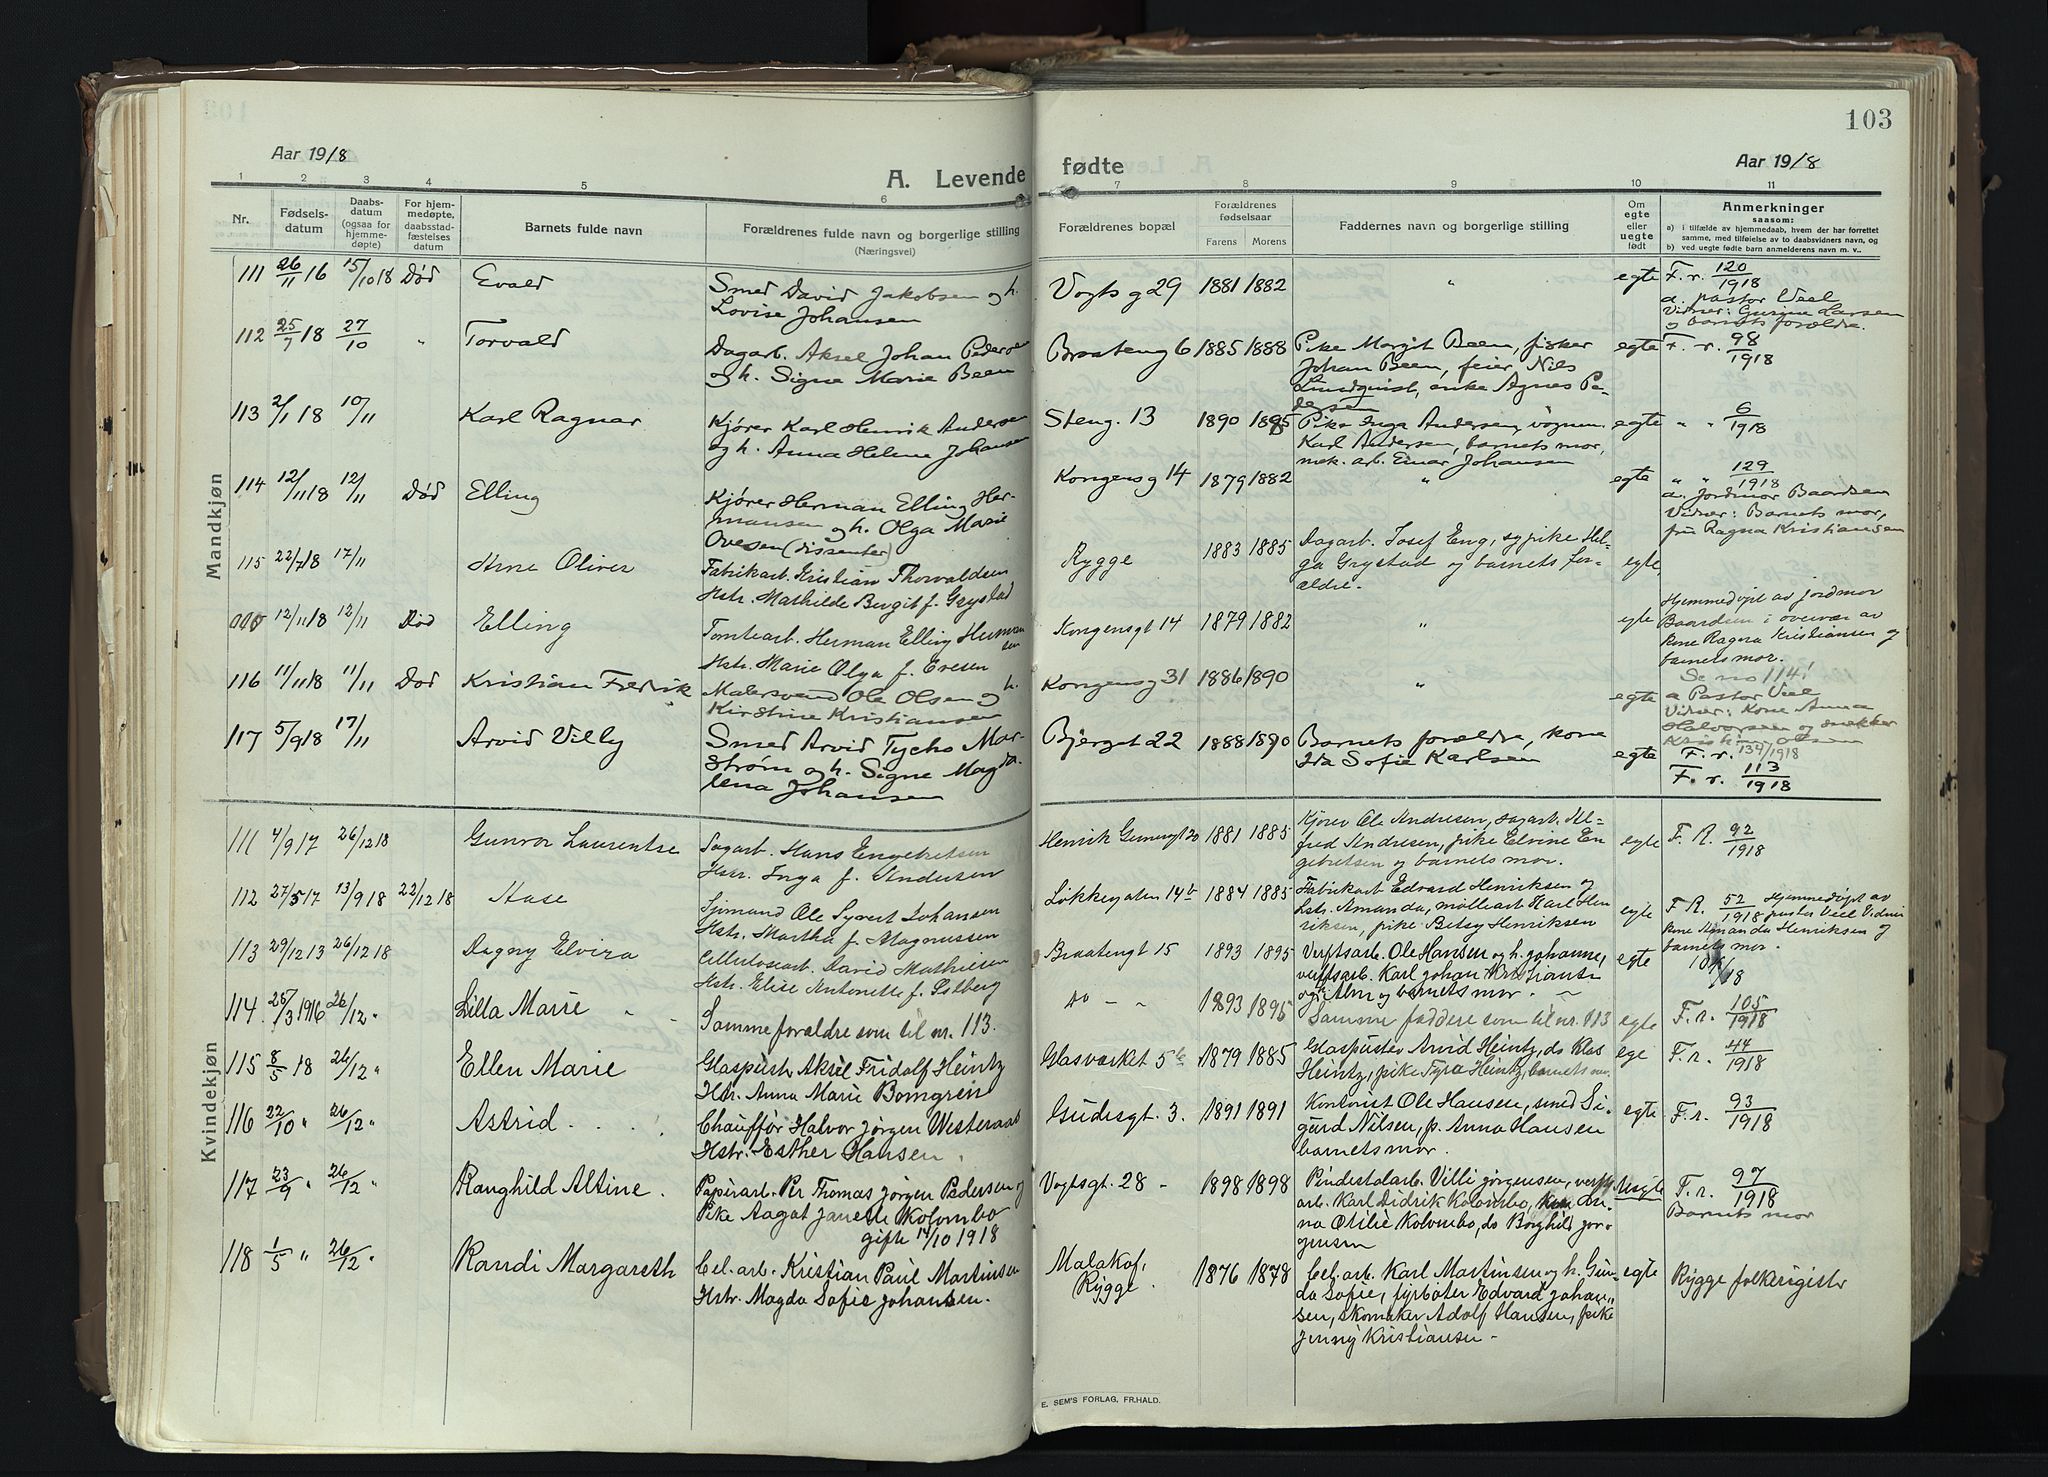 103
Aar 1918
A. Levende fødte
Aar 1918
1 2 3 4 5 6 7 8 9 10 11
Nr.
Fødsels-
datum
Daabs-
datum
(ogsaa for
hjemme-
døpte)
For hjem-
medøpte,
daabsstad-
fæstelses
datum
Barnets fulde navn
Forældrenes fulde navn og borgerlige stilling
(Næringsvei)
Forældrenes bopæl
Forældrenes
fødselsaar
Farens Morens
Faddernes navn og borgerlige stilling
Om
egte
eller
uegte
født
Anmerkninger
saasom:
a) i tilfælde av hjemmedaab, hvem der har forrettet
samme, med tilføielse av to daabsvidners navn, og
b) ved uegte fødte barn anmelderens navn m. v..
Mandkjøn
111 26/11 16 15/10 18 Död Evald
Smed David Jakobsen og h.
Lovise Johansen
Vogts g 29 1881 1882 " egte F. r. 120/1918
a. pastor Veel
Vidner: Gurine Larsen
og barnets forældre.
112 25/7 18 27/10 " Torvald
Dagarb. Aksel Johan Pedersen
og h. Signe Marie Been
Braateng 6 1885 1888 Pike Margit Been, fisker
Johan Been, feier Nils
Lundquist, enke Agnes Pe-
dersen
egte F. r. 98/1918
113 2/1 18 10/11 Karl Ragnar
Kjører Karl Henrik Andersen
og h. Anna Helene Johansen
Steng. 13 1890 1895 Pike Inga Andersen, vognm.
Karl Andersen, barnets mor,
mek. arb. Einar Johansen
egte " " 6/1918
114 12/11 18 12/11 Död Elling
Kjører Herman Elling Her-
mansen og h. Olga Marie
Ovesen (dissenter)
Kongens g 14 1879 1882 " egte " " 129/1918
a. Jordmor Baardsen
Vidner: Barnets mor,
fru Ragna Kristiansen
115 22/7 18 17/11 Arne Oliver
Fabrikarb. Kristian Thorvaldsen
Hstr. Mathilde Bergit f. Grystad
Rygge 1883 1885 Dagarb. Josef Eng, sypike Hel-
ga Grystad og barnets for-
ældre.
egte,
12/11 18 12/11 Död Elling
Tomtearb. Herman Elling Herman
sen
Hstr. Marie Olga f. Evesen
Kongensgt 14 1879 1882 " egte
Hjemmedøpt av jordmor
Baardsen i overvær av
kone Ragna Kristiansen og
barnets mor.
Se no 114!
116 11/11 18 11/11 Död Kristian Fredrik
Malersvend Ole Olsen og h.
Kirstine Kristiansen
Kongens g 31 1886 1890 " egte
a Pastor Veel
Vidner: Kone Anna
Halvorsen og snekker
Kristian Olsen
F. r. 134/1918
117 5/9 18 17/11 Arvid Villy
Smed Arvid Tycho Mor-
ström og h. Signe Magda-
lena Johansen
Bjerggt 22 1888 1890 Barnets forældre, kone
Ida Sofie Karlsen
egte F. r. 113/1918
Kvindekjøn
111 4/9 17 26/12 18 Gunvor Laurentse
Sagarb. Hans Engebretsen
Hstr. Inga f. Andersen
Henrik Gernersgt 20 1881 1885 Kjörer Ole Andresen, sagarb. Al-
fred Andresen, pike Elvine En
gebretsen og barnets mor.
egte F. R. 92/1918
112 27/5 17 13/9 18 22/12 18 Aase
Sjömand Ole Syvert Johansen
Hstr. Martha f. Magnussen
Løkkegaten 14b 1884 1885 Fabrikarb Edvard Henriksen og
hstr. Amanda, møllearb Karl Hen
riksen, pike Betsy Henriksen
egte F. R. 52/1918 Hjemmedøpt av
pastor Veel Vidner
kone Amanda Henriksen og
barnets mor.
113 29/12 13 26/12 18 Dagny Elvira
Cellulosearb. David Mathiesen
Hstr. Elise Antonette f. Östberg
Braatengt 15 1893 1895 Verftsarb. Ole Hansen og h. Johanne,
verftsarb. Karl Johan Kristianse-
og h. Alm og barnets mor.
egte
114. 26/3 1916 26/12 " Lilla Marie " -
Samme forældre som til nr. 113.
Do - " 1893 1895 Samme faddere som til nr. 113 egte F. r. 105/1918
115 8/5 18 26/12 " Ellen Marie
Glaspust. Aksel Fridolf Heintz
Hstr. Anna Marie Bomgren
Glasværket 5 1879 1885 Glaspuster Arvid Heintz, do Klas
Heintz, pike Tyra Heintz, barnets mor
ege F. r. 44/1918
116 22/10 " 26/12 " Astrid . . .
Chauffør Halvor Jørgen Westeraas
Hstr. Esther Hansen.
Gudesgt. 3. 1891 1891 Kontorist Ole Hansen, smed Si-
gurd Nilsen, p. Anna Hansen
barnets mor.
egte F. r. 93/1918
117 23/9 " 26/12 " Ranghild Altine.
Papirarb. Per Thomas Jörgen Pedersen og
Pike Aagot Janette Kolombo
gifte 14/10 1918
Vogtsgt. 28 - 1898 1898 Pindestolarb. Villi Jörgensen, verfts
arb. Karl Didrik Kolombo, kone An-
na Otilie Kolombo, do Borghild Jör-
gensen
Uegte F. r. 97/1918
Barnets mor
118 1/5 " 26/12 " Randi Margareth
Cel. arb. Kristian Paul Martinsen
Hstr. Magda Sofie Johansen.
Malakof,
Rygge.
1876 1878 Cel. arb. Karl Martinsen og h. Gun-
da Sofie, fyrböter Edvard Johan-
sen, skomaker Adolf Hansen, pike
Jenny Kristiansen -
egte Rygge folkerigister
E. SEM'S FORLAG, FR.HALD.